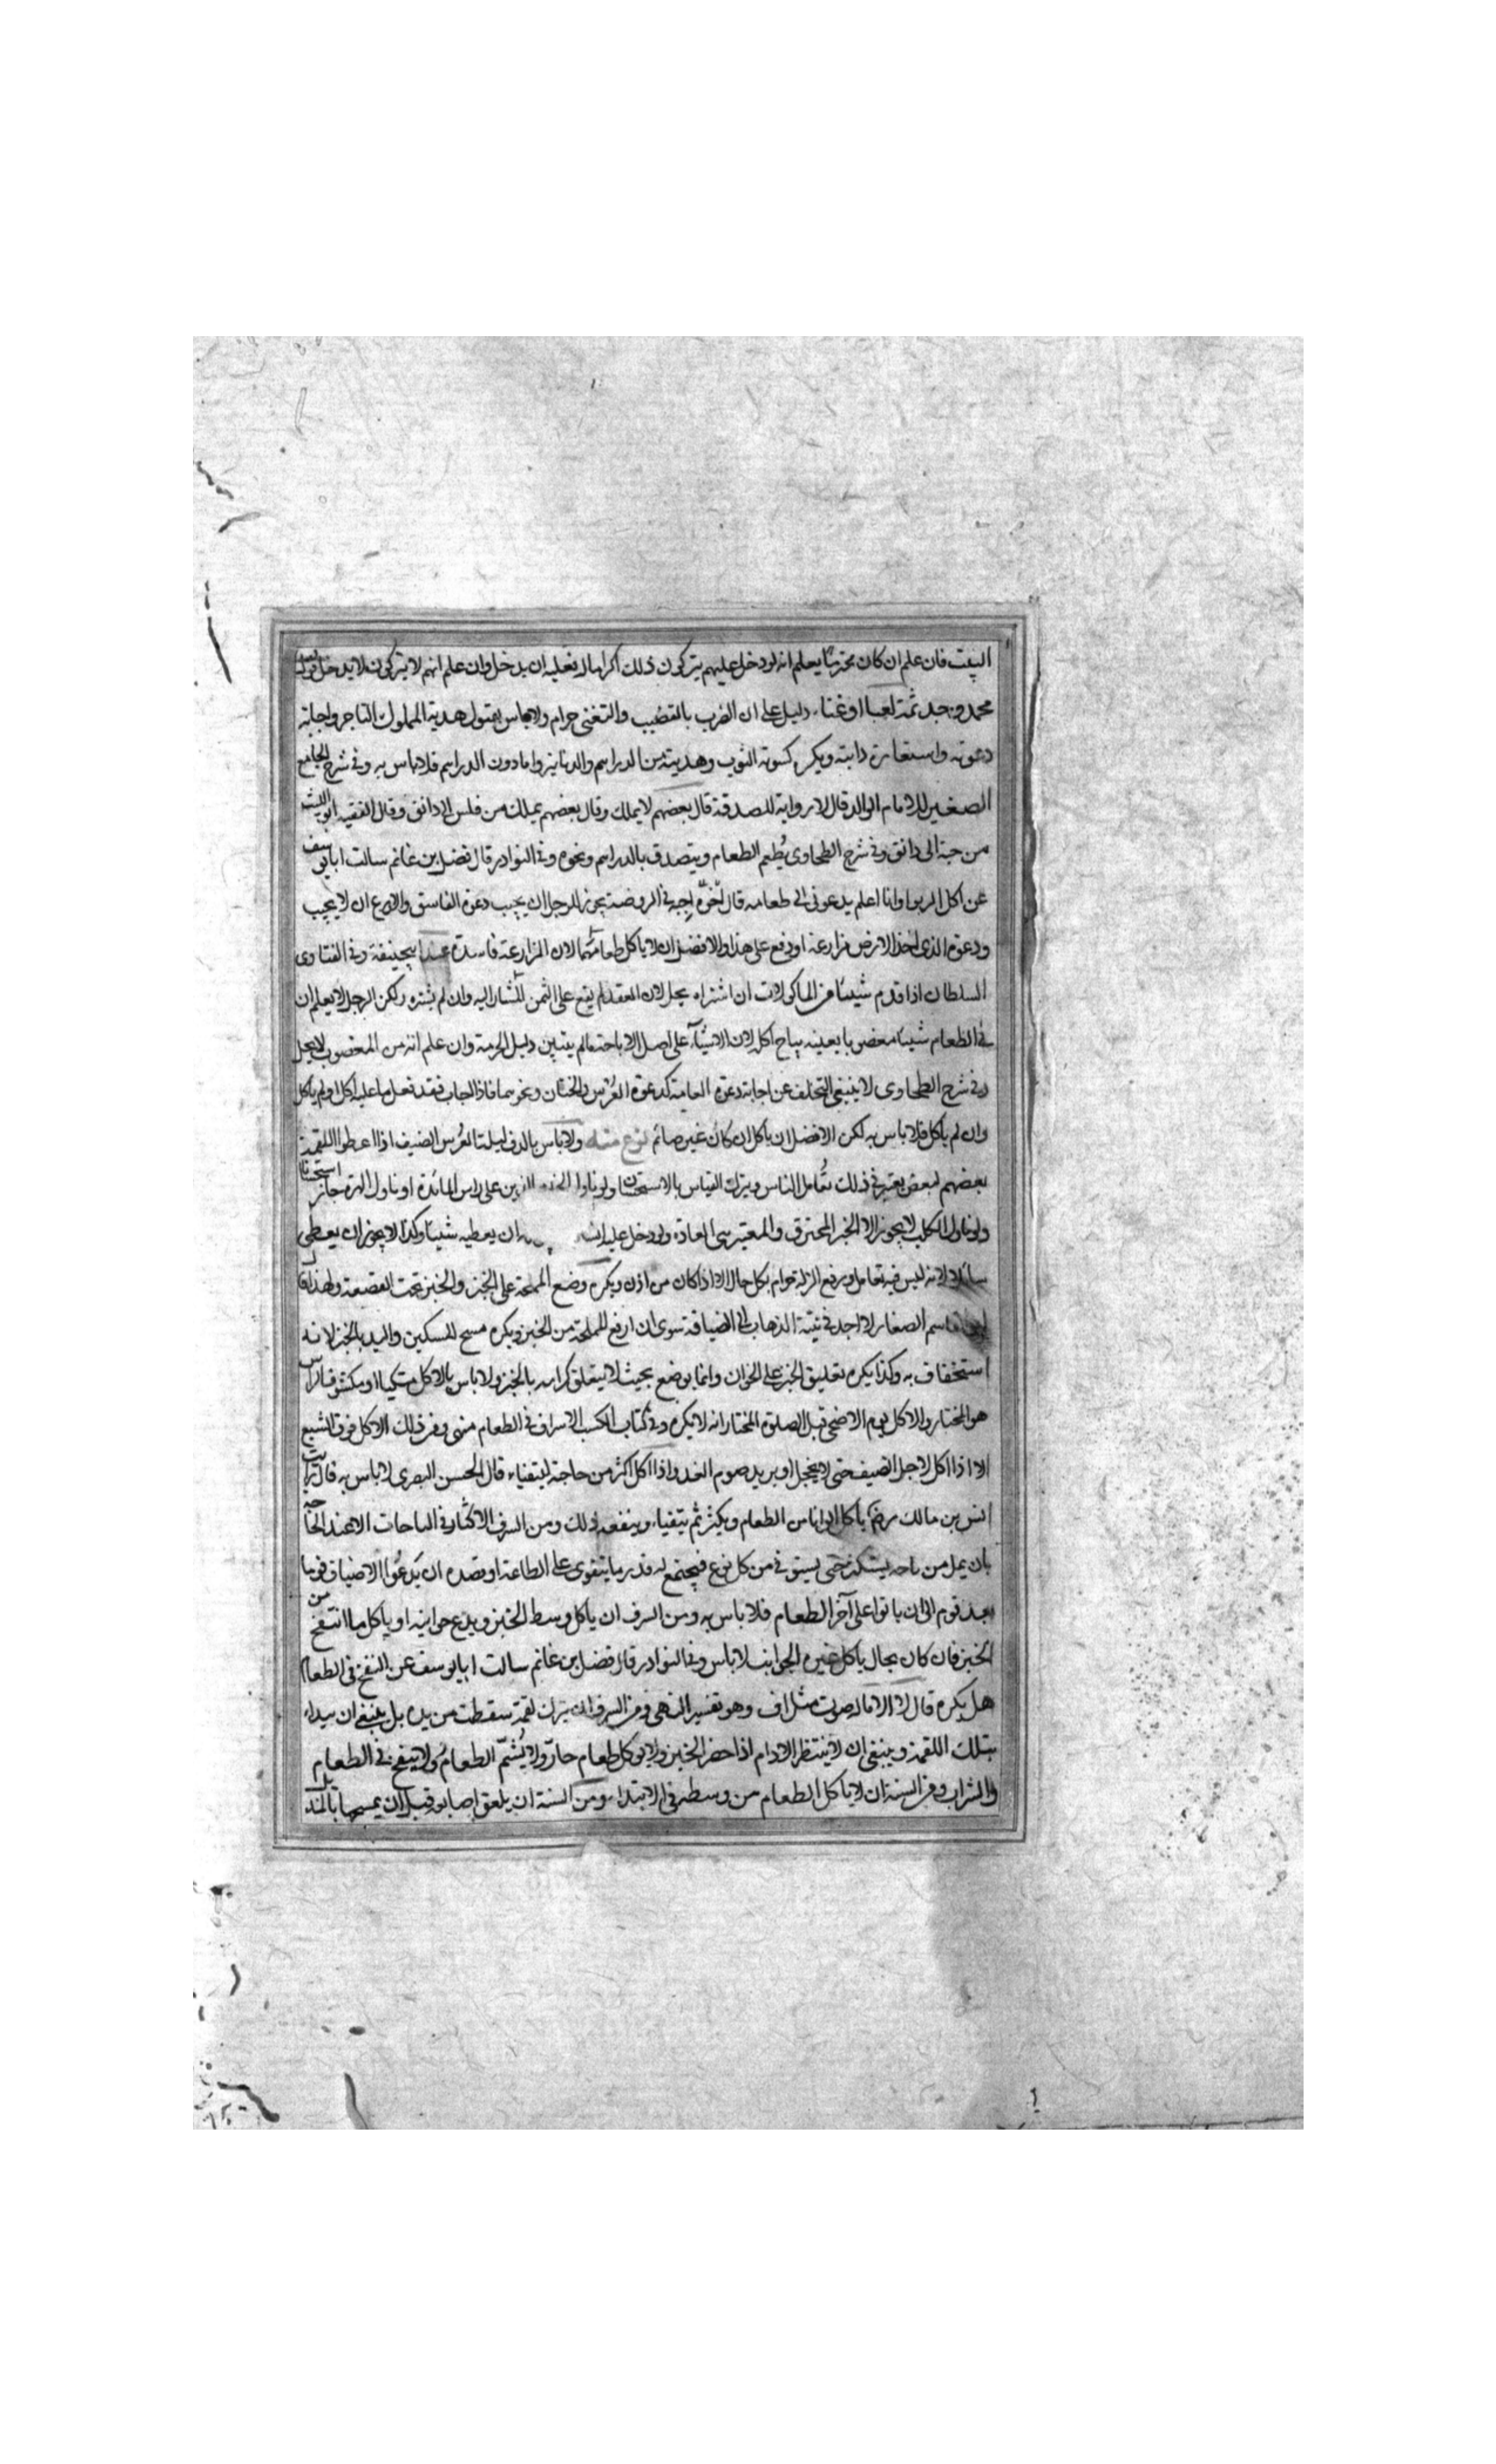 البيت فان علم ان كان محترما يعلم انه لو دخل عليهم يتركون ذلك اكراما له فعليه ان يدخل وان علم انهم لا يتركون لا يدخل قول
محمد وجد ثمة لعبا او غناء دليل على ان الضرب بالقضيب والتغني حرام ولا باس بقبول هدية المملوك التاجر واجابة
دعوته واستعارة دابته ويكره كسوته الثوب وهديته من الدراهم والدنانير واما دون الدراهم فلا باس به وفي شرح الجامع
الصغير للامام الوالد قال لا رواية للصدقة قال بعضهم لا يملك وقال بعضهم يملك من فلس الى دانق وقال الفقيه ابو الليث
من حبة الى دانق وفي شرح الطحاوي يُطعم الطعام ويتصدق بالدراهم ونحوه وفي النوادر قال فضل بن غانم سالت ابا يوسف
عن اكل الربوا وانا اعلم يدعوني الى طعامه قال اجبه في الروضة يجوز للرجل ان يجيب دعوة الفاسق والاورع ان لا يجيب
ودعوة الذي اخذ الارض مزارعة او دفع على هذا والافضل ان لا ياكل طعامهما لان المزارعة فاسدة عند ابيحنيفة وفي الفتاوى
السلطان اذا قدم شيئا من الماكولات ان اشتراه يحل لان العقد لم يقع على الثمن المشار اليه وان لم يشتره لكن الرجل لا يعلم ان
في الطعام شيئا مغصوبا بعينه يباح اكله لان الاشياء على اصل الاباحة مالم يتبين دليل الحرمة وان علم انه من المغصوب لا يحل
وفي شرح الطحاوي لا ينبغي التخلف عن اجابة دعوة العامة كدعوة العرس والختان ونحوهما فاذا اجاب فقد فعل ما عليه اكل او لم ياكل
وان لم ياكل فلا باس به لكن الافضل ان ياكل ان كان غير صائم نوع منه ولا باس بالدف ليلة العُرس الضيف اذا اعطوا اللقمة
بعضهم لبعض يعتبر في ذلك تعامل الناس ويترك القياس بالاستحسان ولو ناولوا الذين على راس المائدة او ناول الهرة جاز استحسانا
ولو ناول الكلب لا يجوز الا الخبز المحترق والمعتبر هي العادة ولو دخل عليه ان يعطيه شيئا وكذا لا يجوز ان يعطي
سائلا لانه ليس فيه تعامل ورفع الزلة حرام بكل حال الا اذا كان من اذن ويكره وضع المملحة على الخبز والخبز تحت القصعة ولهذا قال
ابو القاسم الصفار لا اجد في نية الذهاب الى الضيافة سوى ان ارفع المملحة من الخبز ويكره مسح السكين واليد بالخبز لانه
استخفاف به وكذا يكره تعليق الخبز على الخوان وانما يوضع بحيث لا يتعلق كرامة بالخبز ولا باس بالاكل متكيا او مكشوف الراس
هو المختار والاكل يوم الاضحى قبل الصلوة المختار انه لا يكره وفي كتاب الكسب الاسراف في الطعام منهى ومن ذلك الاكل فوق الشبع
الا اذا اكل لاجل الضيف حتى لا يخجل او يريد صوم الغد واذا اكل اكثر من حاجة ليتقياء قال الحسن البصري لا باس به قال رايت
انس بن مالك رضه ياكل الوانا من الطعام ويكثر ثم يتقياء وينفعه ذلك ومن السرف الاكثار في الباحات الا عند الحاجة
بان يمل من باحه يستكثر حتى يستوفي من كل نوع فيجتمع له قدر ما يتقوى على الطاعة او قصده ان يدعُوا الاضياف قوما
بعد قوم الى ان ياتوا على آخر الطعام فلا باس به ومن السرف ان ياكل وسط الخبز ويدع حوانبه او ياكل ما انتفخ من
الخبز فان كان بحال ياكل غيره الجوانب لا باس وفي النوادر قال فضل بن غانم سالت ابا يوسف عن النفخ في الطعام
هل يكره قال لا الا ماله صوت مثل اف وهو تفسير النهي ومن السرف ان يترك لقمة سقطت من يده بل ينبغي ان يبداء
بتلك اللقمة وينبغي ان لا ينتظر الادام اذا حضر الخبز ولا يوكل طعام حارّ ولا يُشَمّ الطعام ولا ينفخ في الطعام
والشراب ومن السنة ان لا ياكل الطعام من وسطه في الابتداء ومن السنة ان يلعق اصابعه قبل ان يمسحها بالمنديل